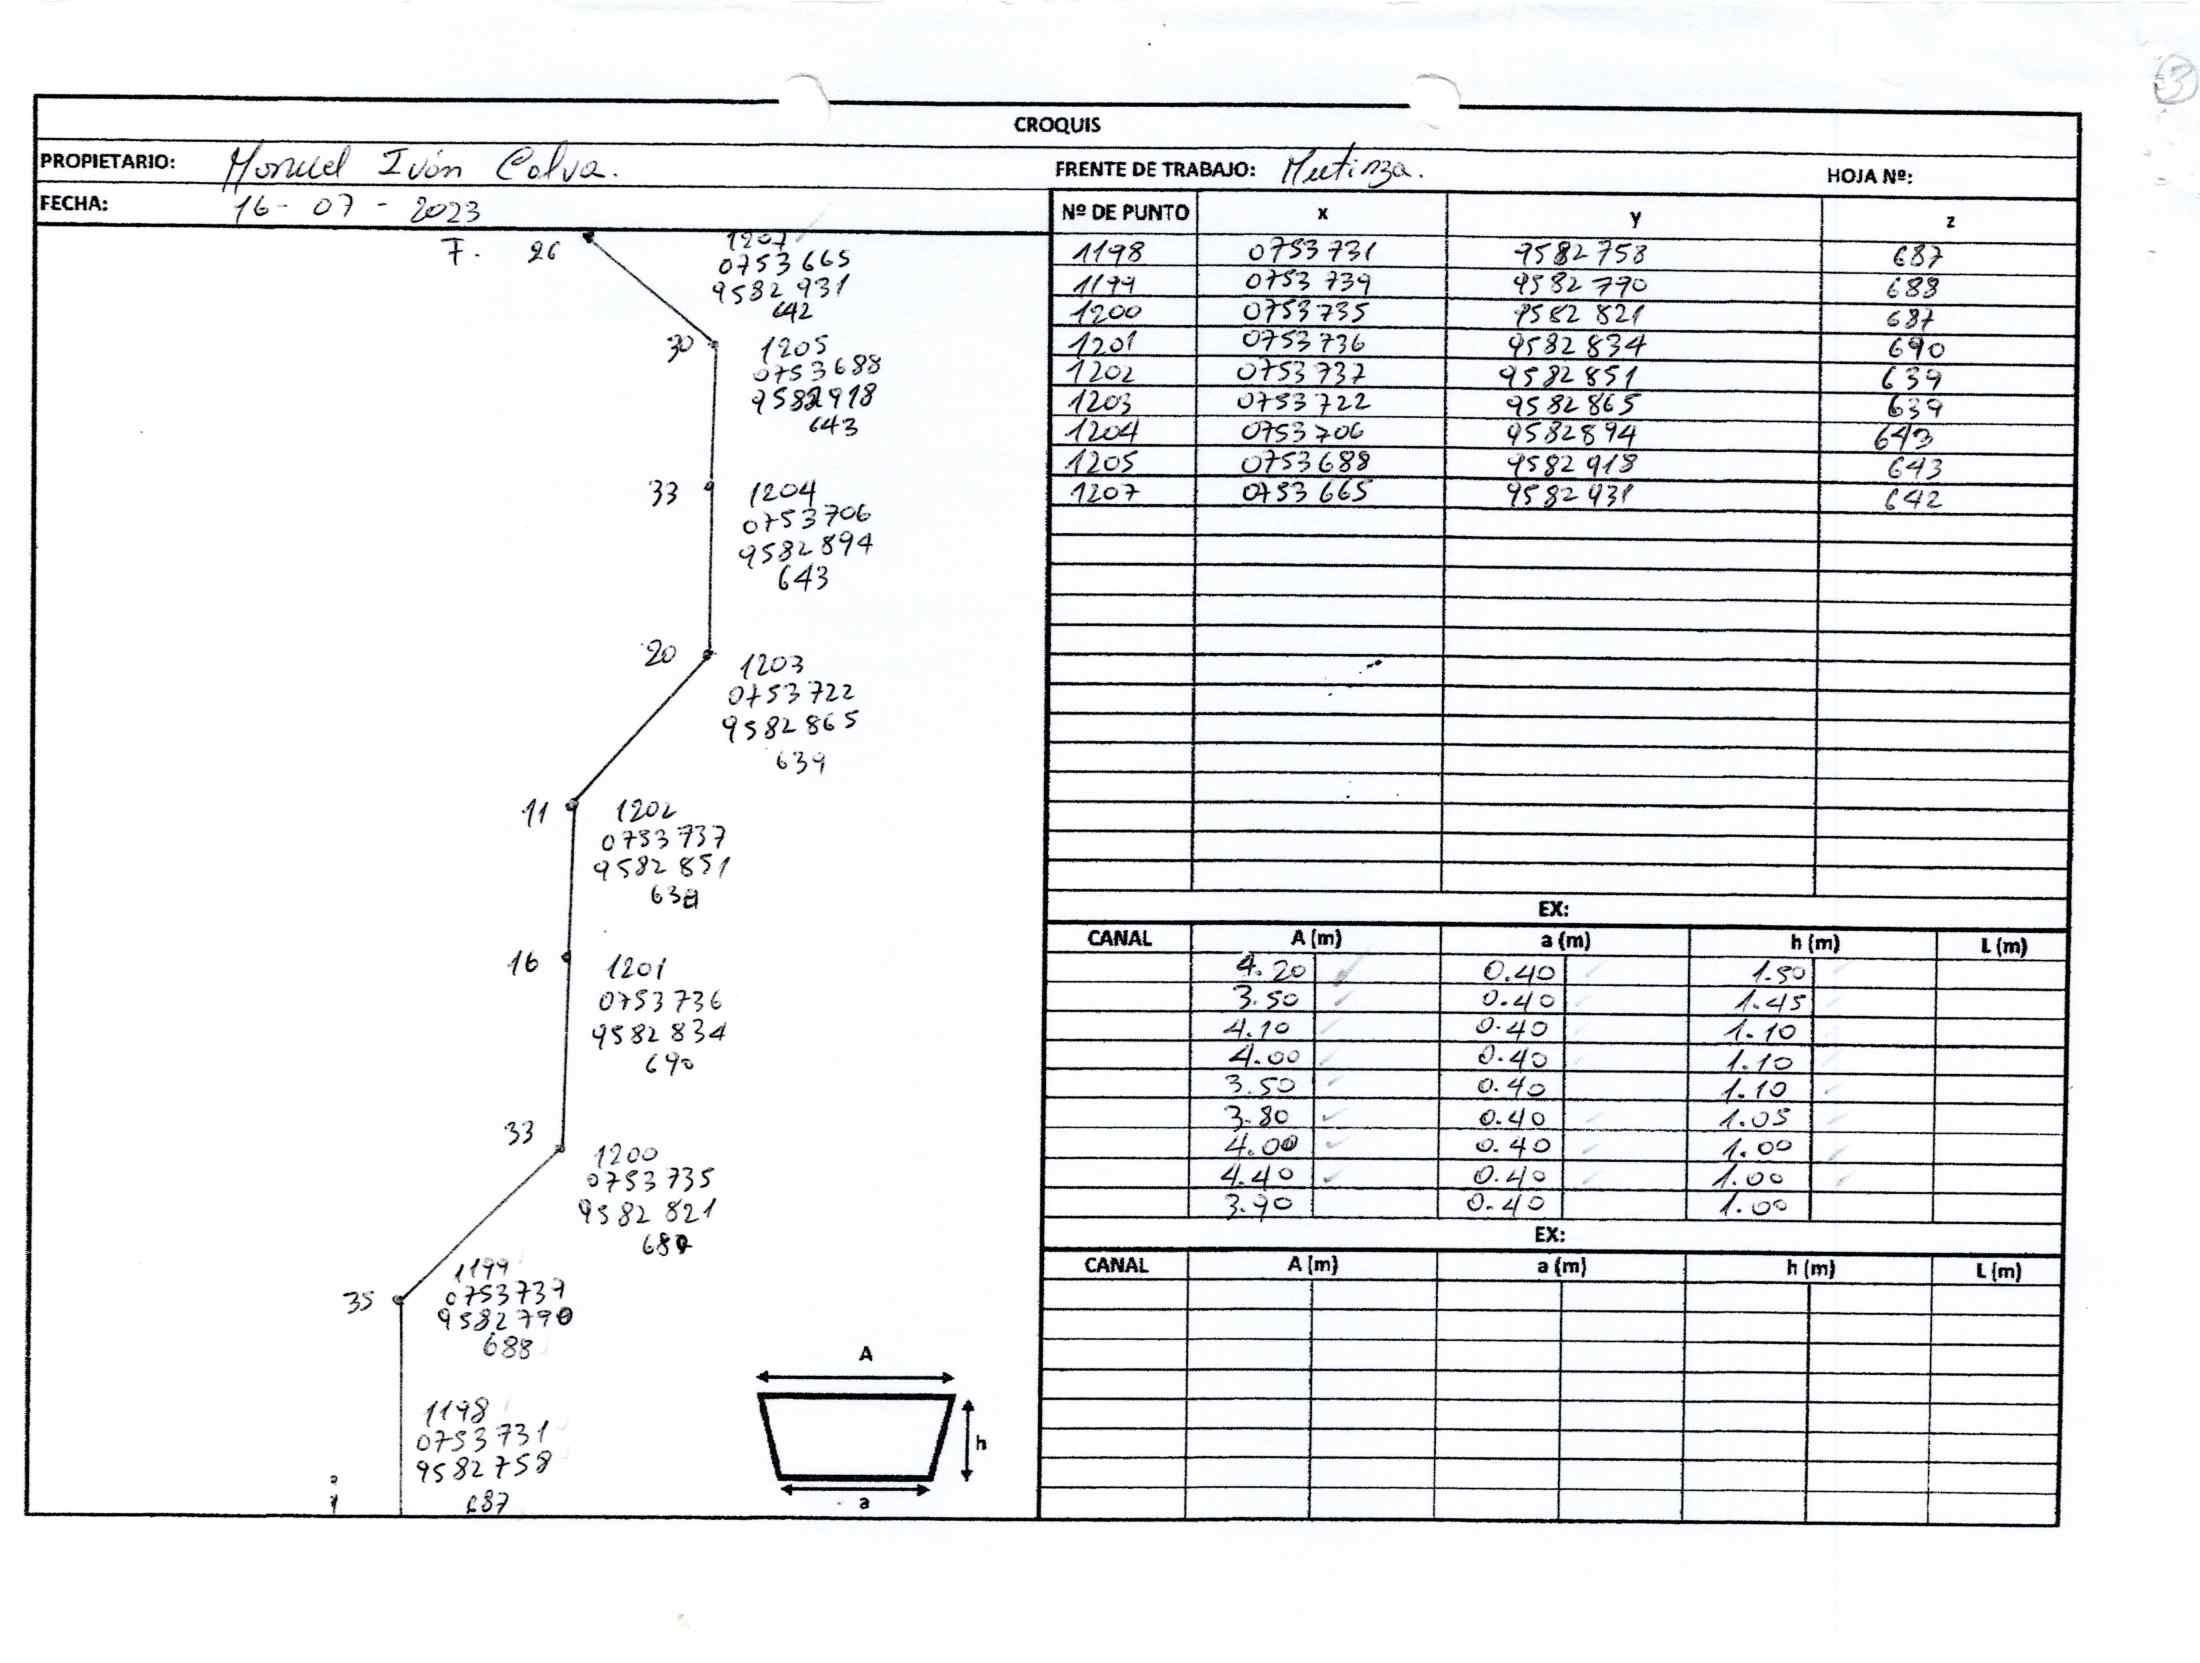 3
CROQUIS
PROPIETARIO: Manuel Iván Calva.
FRENTE DE TRABAJO: Mutinza.
HOJA Nº:
FECHA: 16- 07 - 2023
F. 26
1207
0753 665
9582 931
642
30
1205
0753688
9582918
643
33
1204
0753706
9582 894
643
20
1203
0753722
9582 865
639
11
1202
0753 737
9582 851
639
16
1201
0753 736
9582 834
690
33
1200
0753735
9582 821
687
35
1199
0753739
9582 790
688
1198
0753 731
9582758
687
A
h
a
Nº DE PUNTO x y z
1198 0753 731 9582 758 687
1199 0753 739 9582 790 688
1200 0753735 9582 821 687
1201 0753 736 9582 834 690
1202 0753 737 9582 851 639
1203 0753 722 9582 865 639
1204 0753 706 9582 894 643
1205 0753 688 9582 918 643
1207 0753 665 9582 931 642
EX:
CANAL A (m) a (m) h (m) L (m)
4.20 0.40 1.50
3.50 0.40 1.45
4.10 0.40 1.10
4.00 0.40 1.10
3.50 0.40 1.10
3.80 0.40 1.05
4.00 0.40 1.00
4.40 0.40 1.00
3.90 0.40 1.00
EX:
CANAL A (m) a (m) h (m) L (m)